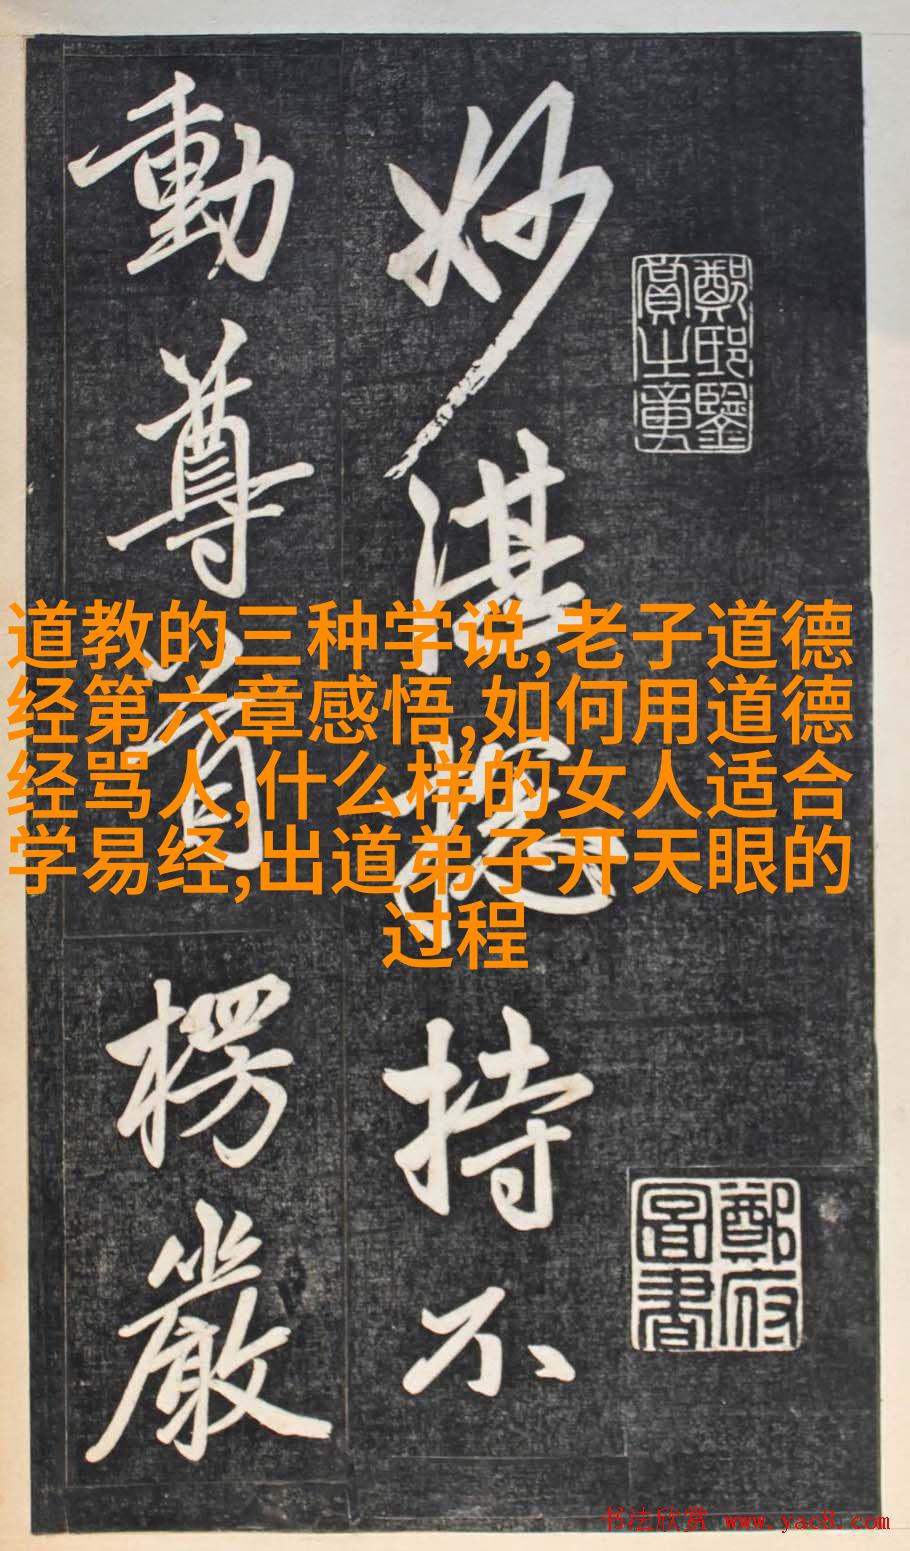 鄭邸鑒
賞之章
鄭府
圖書
妙湛揔持不
動尊首楞嚴
道教的三种学说,老子道德
经第六章感悟,如何用道德
经骂人,什么样的女人适合
学易经,出道弟子开天眼的
过程
书法欣赏 www.yac8.com